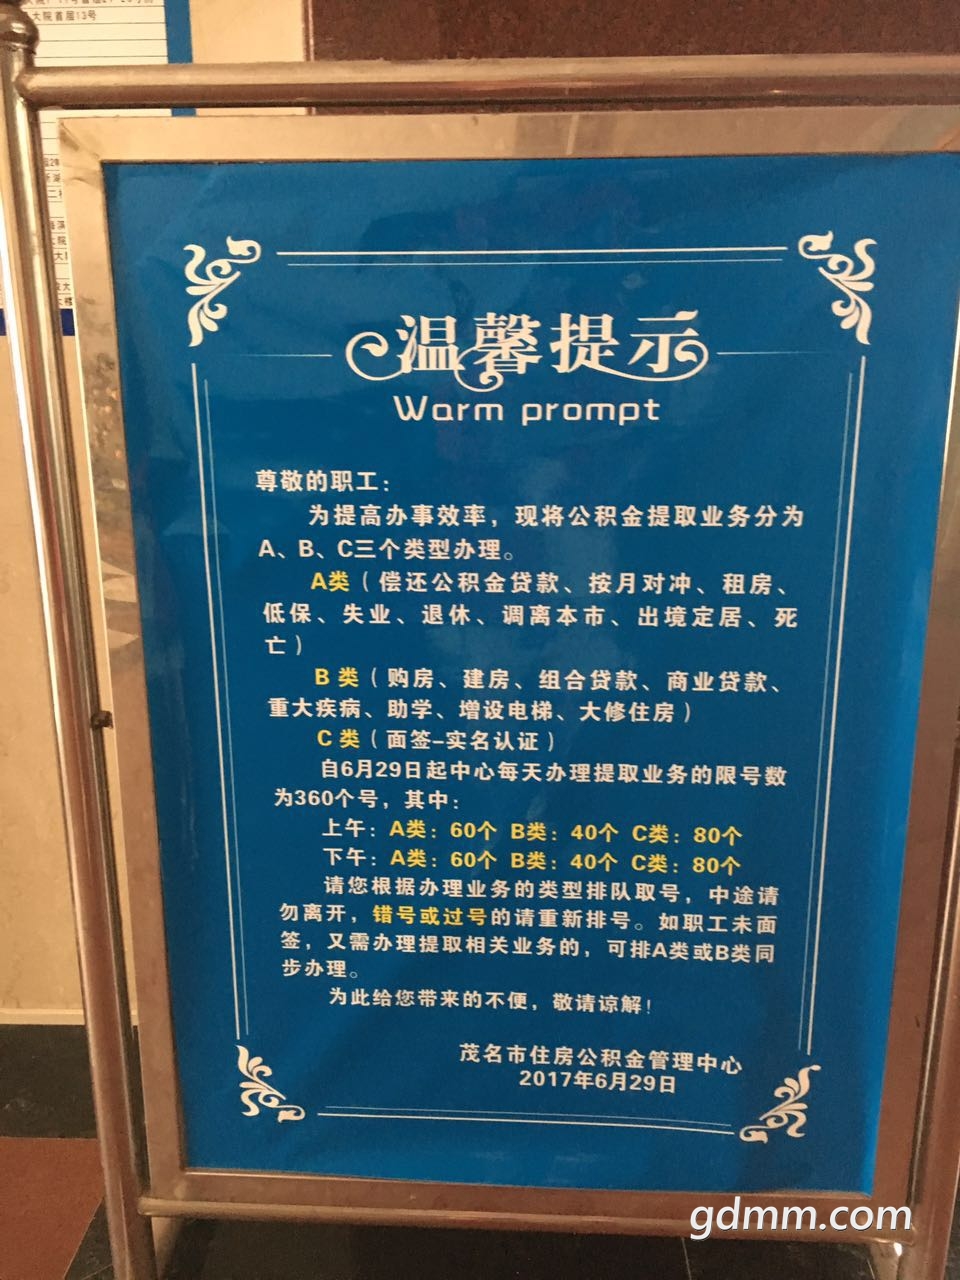 大院首届13号
温馨提示
Warm prompt
尊敬的职工：
为提高办事效率，现将公积金提取业务分为
A、B、C三个类型办理。
A类（偿还公积金贷款、按月对冲、租房、
低保、失业、退休、调离本市、出境定居、死
亡）
B类（购房、建房、组合贷款、商业贷款、
重大疾病、助学、增设电梯、大修住房）
C类（面签-实名认证）
自6月29日起中心每天办理提取业务的限号数
为360个号，其中：
上午：A类：60个 B类：40个 C类：80个
下午：A类：60个 B类：40个 C类：80个
请您根据办理业务的类型排队取号，中途请
勿离开，错号或过号的请重新排号。如职工未面
签，又需办理提取相关业务的，可排A类或B类同
步办理。
为此给您带来的不便，敬请谅解！
茂名市住房公积金管理中心
2017年6月29日
gdmm.com